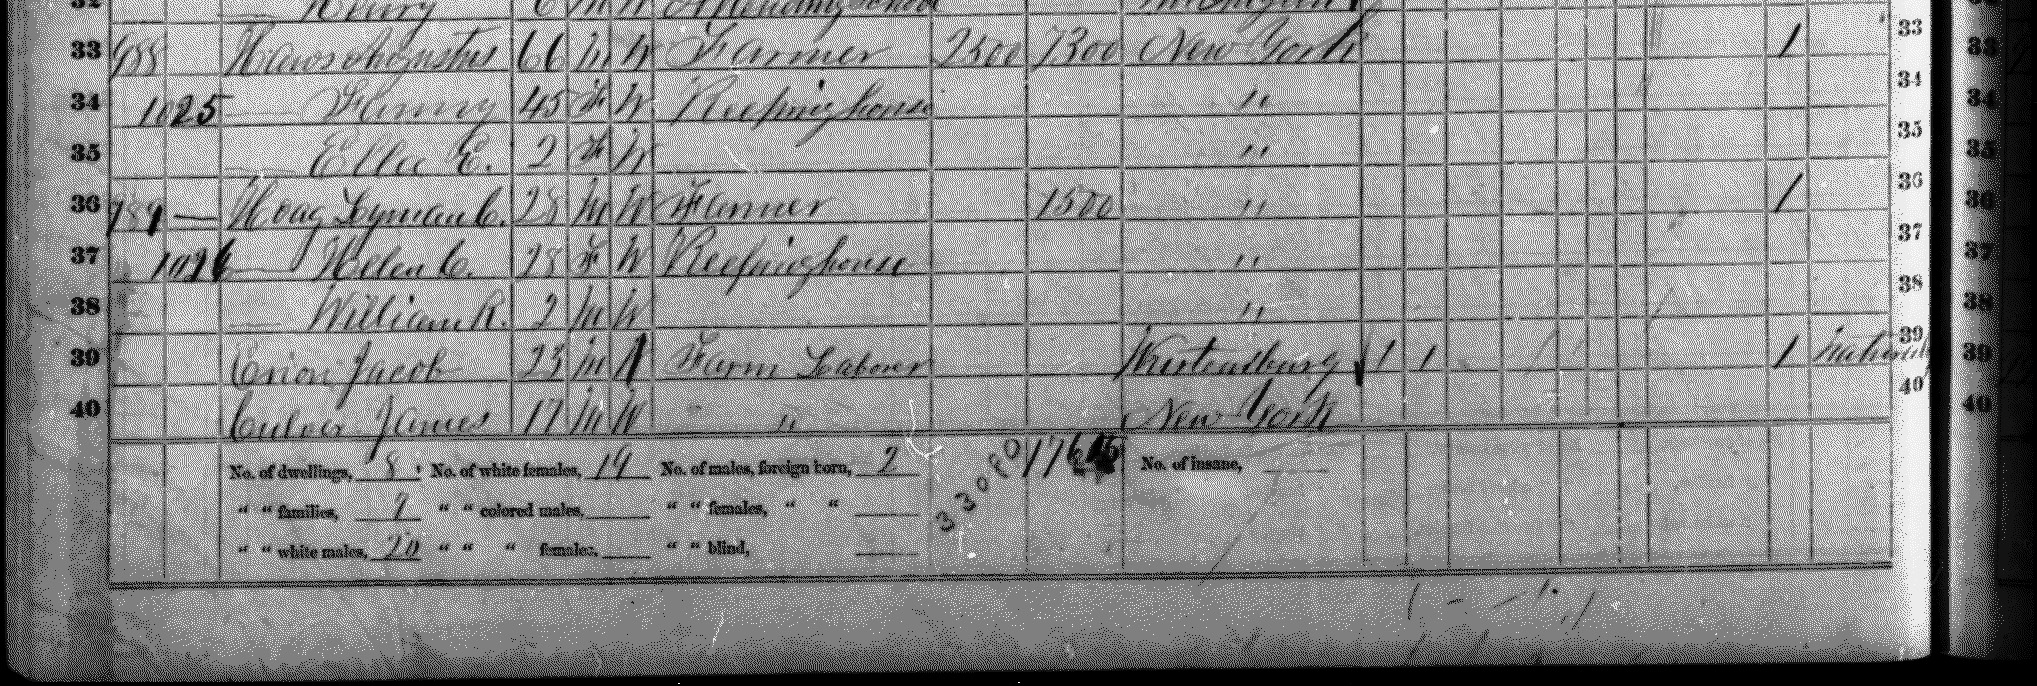 32 Henry 6 M W Attending School
33 988 Haws Augustus 66 M W Farmer 2500 7300 New York 1 33
34 1025 — Fanny 45 F W Keeping house " 34
35 — Ellie E. 2 F W " 35
36 989 — Hoag Lyman C. 28 M W Farmer 1500 " 1 36
37 1026 — Helen C. 28 F W Keeping house " 37
38 — William R. 2 M W " 38
39 Jacob 23 M Farm Laborer 1 1 1 39
40 Culver James 17 M W " New York 40
No. of dwellings, 8 No. of white females, 19 No. of males, foreign born, 2 No. of insane,
" " families, 9 " " colored males, " " females, " "
" " white males, 20 " " " females, " " blind,